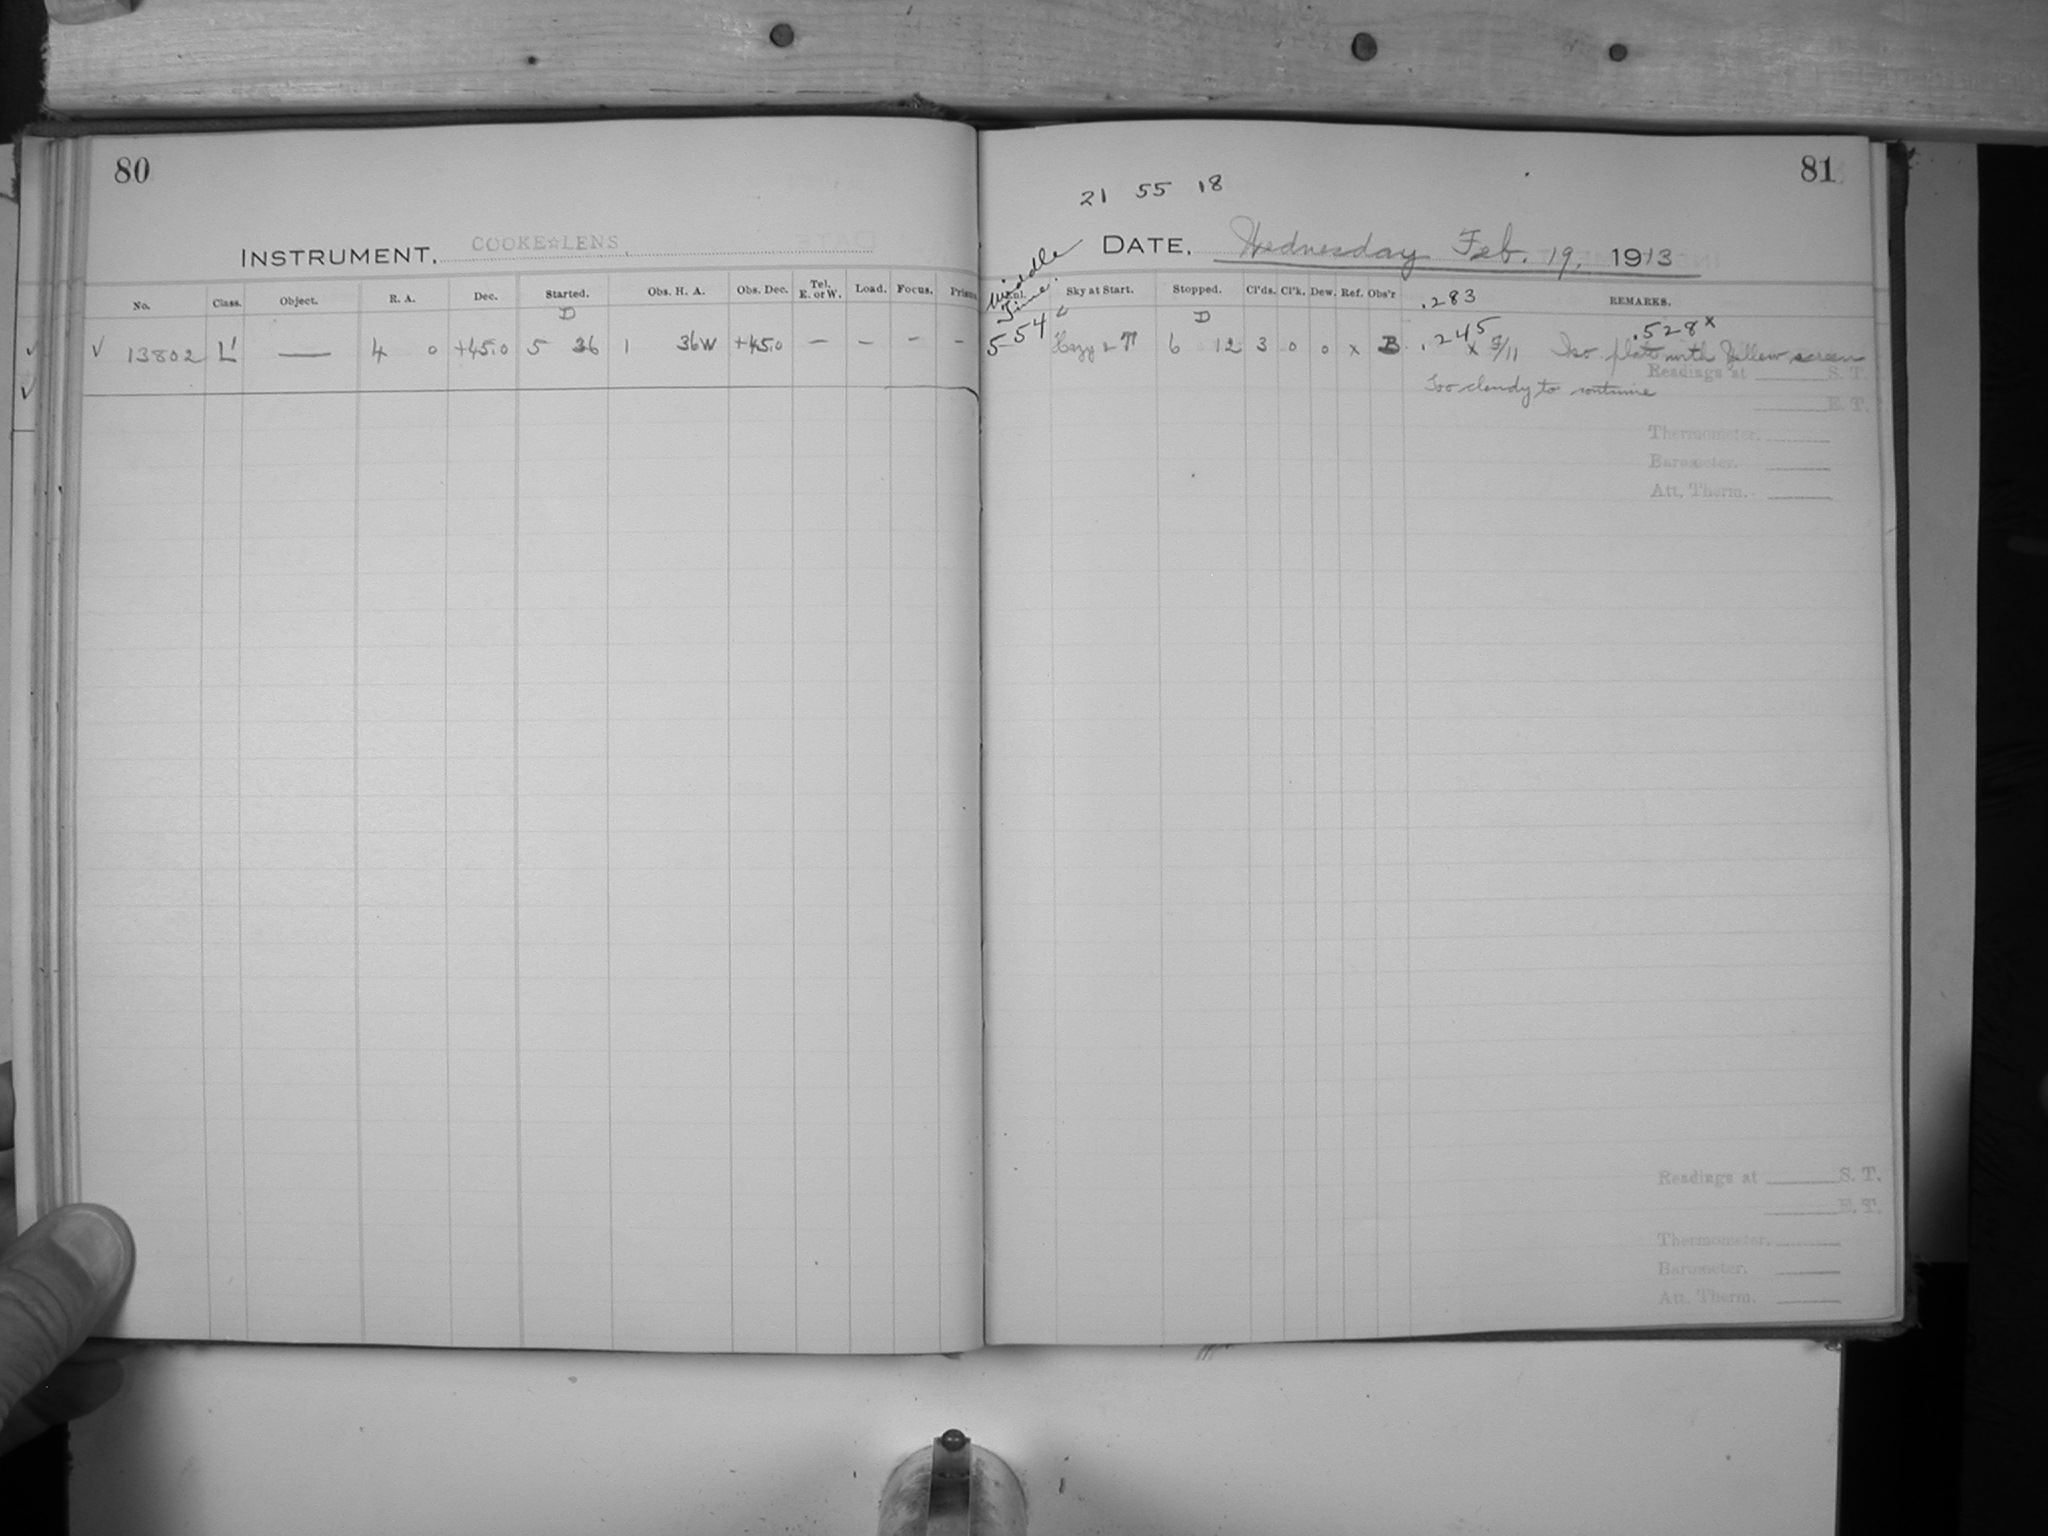 80
INSTRUMENT, COOKE☆LENS
No. Class. Object. R. A. Dec. Started. Obs. H. A. Obs. Dec. Tel. E. or W. Load. Focus. Prism
D
√ 13802 L' — 4 0 +45.0 5 36 1 36W +45.0 — — — —
81
21 55 18
DATE, Wednesday Feb. 19, 1913
Middle Time. Sky at Start. Stopped. Cl'ds. Cl'k. Dew. Ref. Obs'r .283 REMARKS.
D
5 54 Hazy 6 12 3 0 0 x B .245 .528 x
x 5/11 Iso plate with yellow screen
Too cloudy to continue
Readings at S. T.
E. T.
Thermometer.
Barometer.
Att. Therm.
Readings at S. T.
E. T.
Thermometer.
Barometer.
Att. Therm.